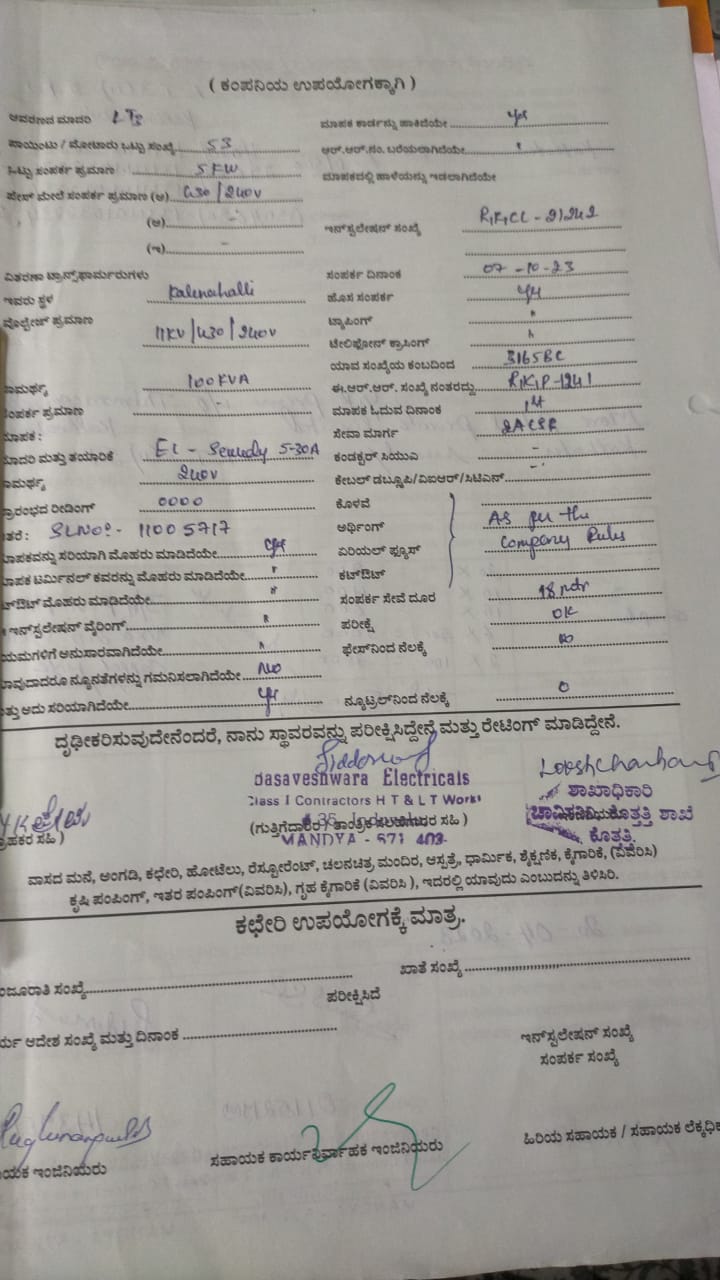 ( ಕಂಪನಿಯ ಉಪಯೋಗಕ್ಕಾಗಿ )
ಆವರಣದ ಮಾದರಿ LT3 ಮಾಪಕ ಕಾರ್ಡನ್ನು ಹಾಕಿದೆಯೇ yes
ಪಾಯಿಂಟು / ಮೋಟಾರು ಒಟ್ಟು ಸಂಖ್ಯೆ 53 ಆರ್.ಆರ್.ನಂ. ಬರೆಯಲಾಗಿದೆಯೇ "
ಒಟ್ಟು ಸಂಪರ್ಕ ಪ್ರಮಾಣ 5KW ಮಾಪಕದಲ್ಲಿ ಹಾಳೆಯನ್ನು ಇಡಲಾಗಿದೆಯೇ
ಫೇಸ್ ಮೇಲೆ ಸಂಪರ್ಕ ಪ್ರಮಾಣ (ಅ) 430/240V
(ಆ) - ಇನ್‌ಸ್ಟಲೇಷನ್ ಸಂಖ್ಯೆ
(ಇ) -
ವಿತರಣಾ ಟ್ರಾನ್ಸ್‌ಫಾರ್ಮರುಗಳು ಸಂಪರ್ಕ ದಿನಾಂಕ 07-10-23
ಇರುವ ಸ್ಥಳ Kalenahalli ಹೊಸ ಸಂಪರ್ಕ yes
ವೋಲ್ಟೇಜ್ ಪ್ರಮಾಣ 11KV/430/240V ಟ್ಯಾಪಿಂಗ್ "
ಟೆಲಿಫೋನ್ ಕ್ರಾಸಿಂಗ್ "
ಯಾವ ಸಂಖ್ಯೆಯ ಕಂಬದಿಂದ 3165BC
ಸಾಮರ್ಥ್ಯ 100KVA ಈ.ಆರ್.ಆರ್. ಸಂಖ್ಯೆ ನಂತರದ್ದು RKP-1241
ಸಂಪರ್ಕ ಪ್ರಮಾಣ - ಮಾಪಕ ಓದುವ ದಿನಾಂಕ 1st
ಮಾಪಕ : ಸೇವಾ ಮಾರ್ಗ 2ACSR
ಮಾದರಿ ಮತ್ತು ತಯಾರಿಕೆ 5-30A ಕಂಡಕ್ಟರ್ ಸಿಯುಎ -
ಸಾಮರ್ಥ್ಯ 240V ಕೇಬಲ್ ಡಬ್ಲ್ಯೂಪಿ/ವಿಐಆರ್/ಸಿಟಿಎನ್ -
ಪ್ರಾರಂಭದ ರೀಡಿಂಗ್ 0000 ಕೊಳವೆ
ಇತರೆ : SLNO:- 11005717 ಅರ್ಥಿಂಗ್ As per the
ಮಾಪಕವನ್ನು ಸರಿಯಾಗಿ ಮೊಹರು ಮಾಡಿದೆಯೇ yes ಏರಿಯಲ್ ಫ್ಯೂಸ್ Company Rules
ಮಾಪಕ ಟರ್ಮಿನಲ್ ಕವರನ್ನು ಮೊಹರು ಮಾಡಿದೆಯೇ " ಕಟ್‌ಔಟ್
ಕಟ್‌ಔಟ್ ಮೊಹರು ಮಾಡಿದೆಯೇ " ಸಂಪರ್ಕ ಸೇವೆ ದೂರ 18 mtr
ಇನ್‌ಸ್ಟಲೇಷನ್ ವೈರಿಂಗ್ " ಪರೀಕ್ಷೆ OK
ನಿಯಮಗಳಿಗೆ ಅನುಸಾರವಾಗಿದೆಯೇ " ಫೇಸ್‌ನಿಂದ ನೆಲಕ್ಕೆ
ಯಾವುದಾದರೂ ನ್ಯೂನತೆಗಳನ್ನು ಗಮನಿಸಲಾಗಿದೆಯೇ No
ಮತ್ತು ಅದು ಸರಿಯಾಗಿದೆಯೇ yes ನ್ಯೂಟ್ರಲ್‌ನಿಂದ ನೆಲಕ್ಕೆ 0
ದೃಢೀಕರಿಸುವುದೇನೆಂದರೆ, ನಾನು ಸ್ಥಾವರವನ್ನು ಪರೀಕ್ಷಿಸಿದ್ದೇನೆ ಮತ್ತು ರೇಟಿಂಗ್ ಮಾಡಿದ್ದೇನೆ.
Basaveshwara Electricals
Class I Contractors H T & L T Works ಶಾಖಾಧಿಕಾರಿ
ಗ್ರಾಹಕರ ಸಹಿ ) (ಗುತ್ತಿಗೆದಾರರ / ತಾಂತ್ರಿಕ ಸಹಿ ) ಕೊತ್ತತ್ತಿ ಶಾಖೆ
MANDYA - 571 403. ಕೊತ್ತತ್ತಿ.
ವಾಸದ ಮನೆ, ಅಂಗಡಿ, ಕಛೇರಿ, ಹೋಟೆಲು, ರೆಸ್ಟೋರೆಂಟ್, ಚಲನಚಿತ್ರ ಮಂದಿರ, ಆಸ್ಪತ್ರೆ, ಧಾರ್ಮಿಕ, ಶೈಕ್ಷಣಿಕ, ಕೈಗಾರಿಕೆ, (ವಿವರಿಸಿ)
ಕೃಷಿ ಪಂಪಿಂಗ್, ಇತರ ಪಂಪಿಂಗ್(ವಿವರಿಸಿ), ಗೃಹ ಕೈಗಾರಿಕೆ (ವಿವರಿಸಿ ), ಇದರಲ್ಲಿ ಯಾವುದು ಎಂಬುದನ್ನು ತಿಳಿಸಿರಿ.
ಕಛೇರಿ ಉಪಯೋಗಕ್ಕೆ ಮಾತ್ರ.
ಮಂಜೂರಾತಿ ಸಂಖ್ಯೆ ಖಾತೆ ಸಂಖ್ಯೆ
ಪರೀಕ್ಷಿಸಿದೆ
ಕಾರ್ಯ ಆದೇಶ ಸಂಖ್ಯೆ ಮತ್ತು ದಿನಾಂಕ ಇನ್‌ಸ್ಟಲೇಷನ್ ಸಂಖ್ಯೆ
ಸಂಪರ್ಕ ಸಂಖ್ಯೆ
ಸಹಾಯಕ ಇಂಜಿನಿಯರು ಸಹಾಯಕ ಕಾರ್ಯನಿರ್ವಾಹಕ ಇಂಜಿನಿಯರು ಹಿರಿಯ ಸಹಾಯಕ / ಸಹಾಯಕ ಲೆಕ್ಕಧಿಕ